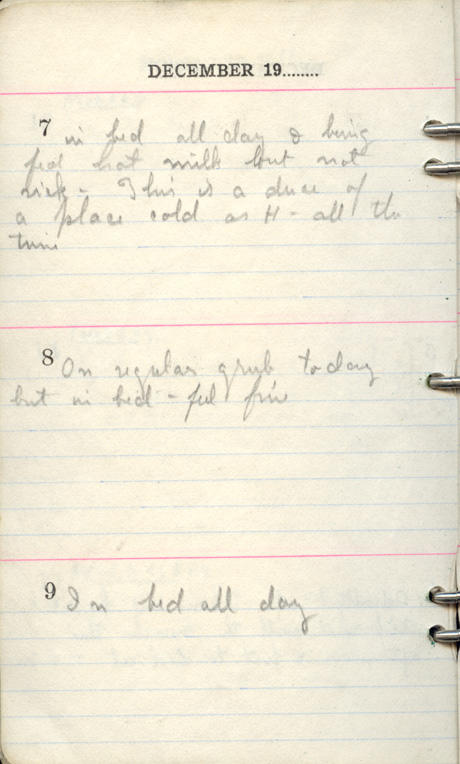 DECEMBER 19........
7 in bed all day & being
fed hot milk but not
sick - This is a duce of
a place cold as H - all the
time
8 On regular grub today
but in bed - feel fine
9 In bed all day